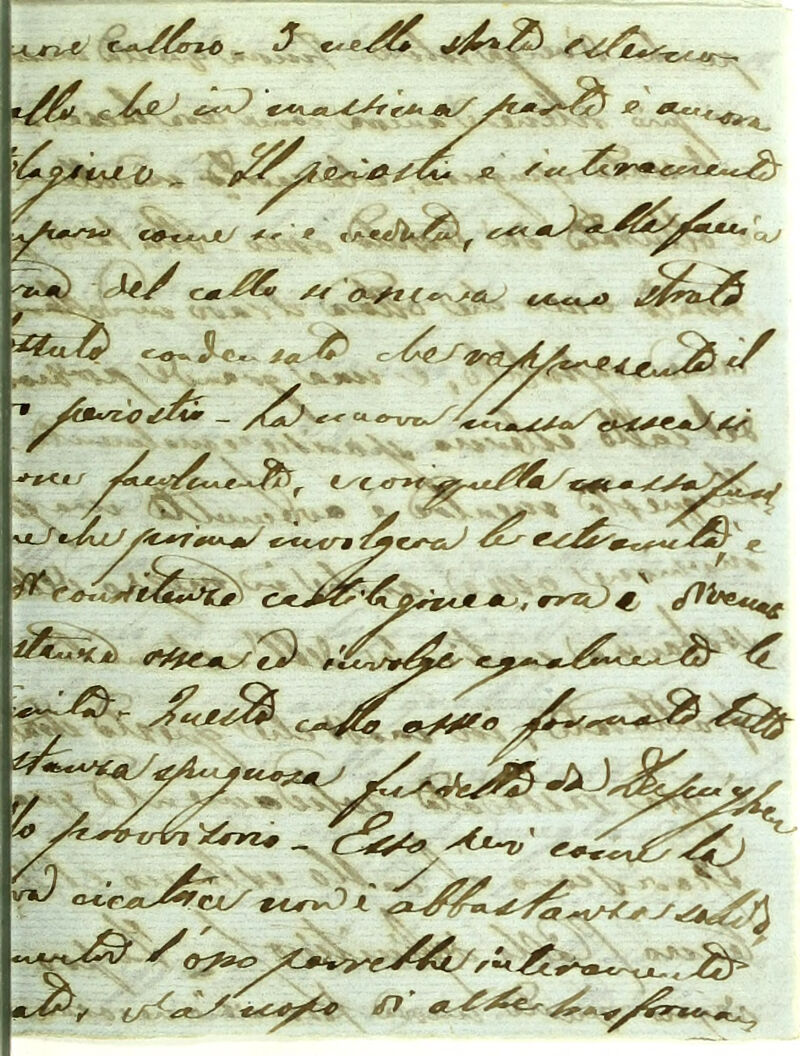 more calloso - 3 nello strato esterno
allo che in massima parte è ancora
ilagineo - Il periostio è interamente
mparso come si è veduto, ma alla faccia
erna del callo si osserva uno strato
tessuto condensato che reppresenta il
o periostio - La nuova massa ossea si
facilmente, e con quella massa fusi-
ne che prima involgeva le estremità, e
di consistenza cartilaginea, ora è divenut
stanza ossea ed involge egualmente le
emità - Questo callo osseo formato tutto
stanza spugnosa fu detto da
llo provvisorio - Esso però come la
va cicatrice non è abbastanza solido,
mente l'osso parrebbe interamente
ato, v'à uopo di altre trasforma-